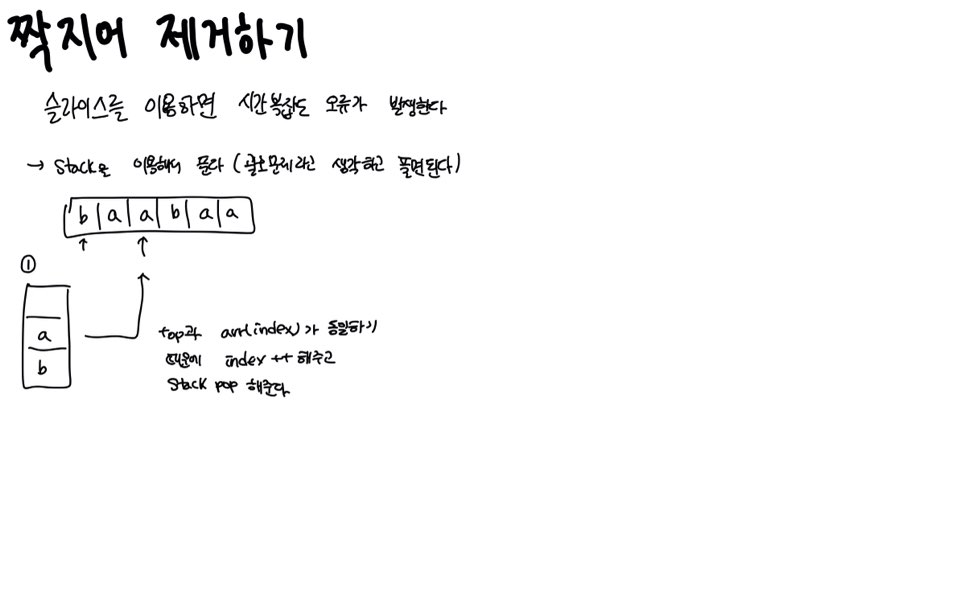 짝지어 제거하기
슬라이스를 이용하면 시간복잡도 오류가 발생한다
→ Stack을 이용해서 푼다 (괄호문제라고 생각하고 풀면된다)
b a a b a a
①
a
b
top과 arr(index)가 동일하기
때문에 index ++ 해주고
Stack pop 해준다